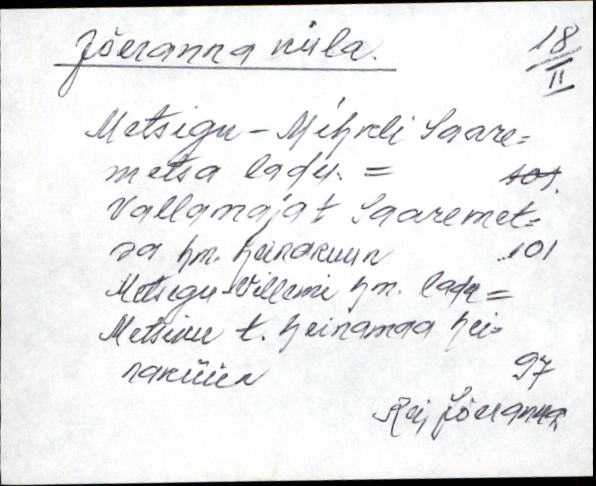 Jõeranna küla.
18
II
Metsigu - Mihkli Saare=
metsa ladu. = 101.
Vallamaja t Saaremet-
sa hm. heinaküün 101
Metsigu-Villemi hm. ladu =
t. heinamaa hei-
naküün 97
Jõeranna